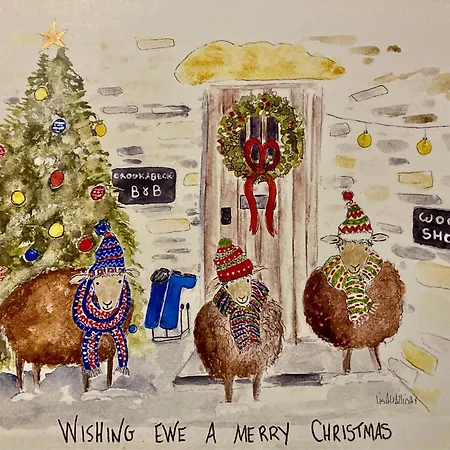 CROOKABECK
B&B
WOO
SHO
WISHING EWE A MERRY CHRISTMAS